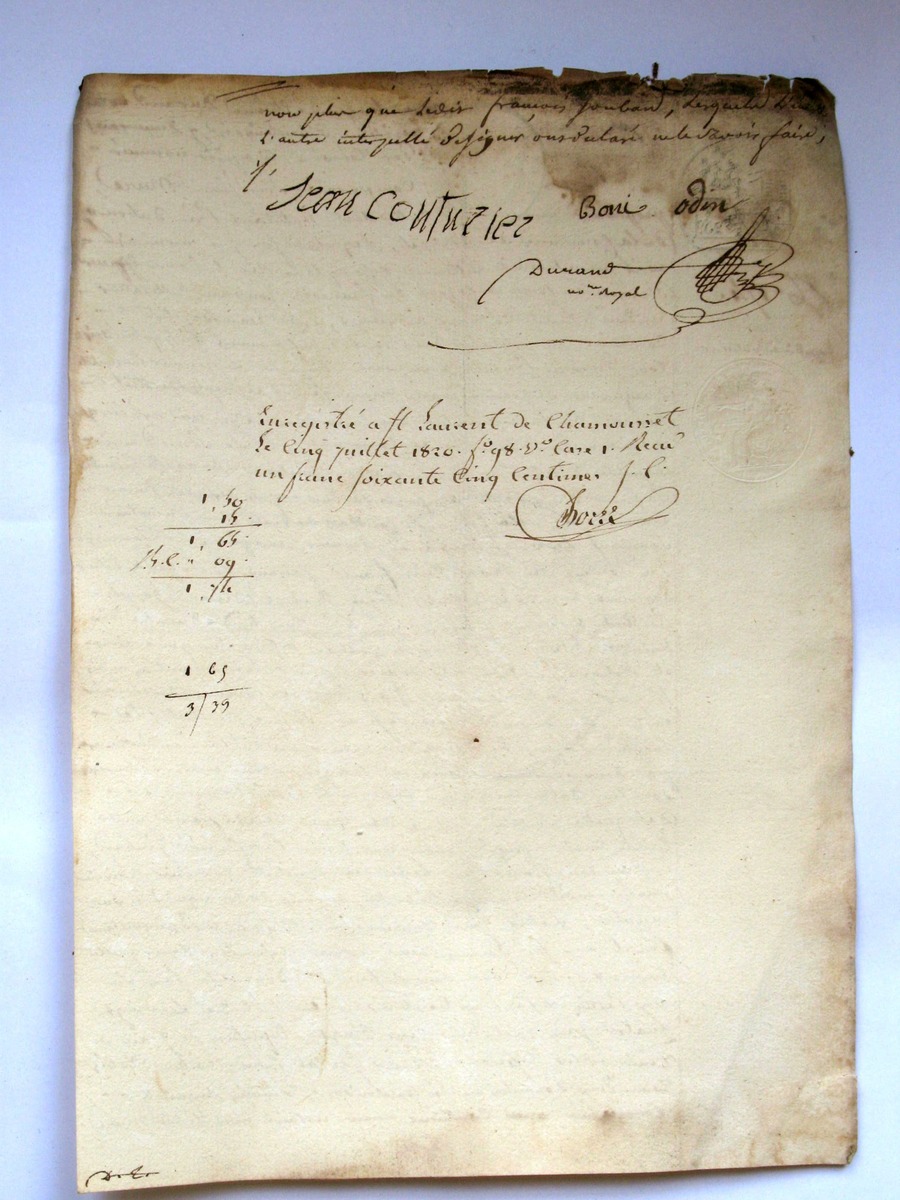 non plus que ledit françois joubard, lesquels
L'autre interpellé de signer ont déclaré ne le savoir faire,
Jean Couturier Boni odin
Durand
no.re Royal
Enregistré a St Laurent de Chamousset
Le Cinq juillet 1820. f.o 98. V.o Case 1. Recu
un franc soixante Cinq Centimes
1, 50
15
1, 65
09
1, 74
1 65
3/39